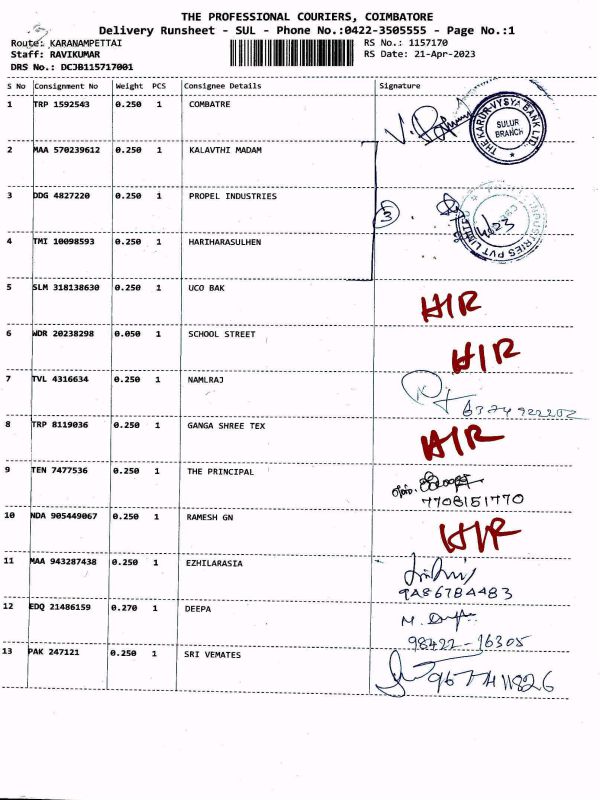 THE PROFESSIONAL COURIERS, COIMBATORE
Delivery Runsheet - SUL - Phone No.:0422-3505555 - Page No.:1
Route: KARANAMPETTAI RS No.: 1157170
Staff: RAVIKUMAR RS Date: 21-Apr-2023
DRS No.: DCJB115717001
S No Consignment No Weight PCS Consignee Details Signature
1 TRP 1592543 0.250 1 COMBATRE
THE KARUR VYSYA BANK LTD. SULUR BRANCH
2 MAA 570239612 0.250 1 KALAVTHI MADAM
3 DDG 4827220 0.250 1 PROPEL INDUSTRIES 3
INDUSTRIES PVT LIMITED
4 TMI 10098593 0.250 1 HARIHARASULHEN
5 SLM 318138630 0.250 1 UCO BAK HIR
6 WDR 20238298 0.050 1 SCHOOL STREET HIR
7 TVL 4316634 0.250 1 NAMLRAJ
6374922202
8 TRP 8119036 0.250 1 GANGA SHREE TEX HIR
9 TEN 7477536 0.250 1 THE PRINCIPAL
7708151770
10 NDA 905449067 0.250 1 RAMESH GN HIR
11 MAA 943287438 0.250 1 EZHILARASIA
9486784483
12 EDQ 21486159 0.270 1 DEEPA
98422-16305
13 PAK 247121 0.250 1 SRI VEMATES